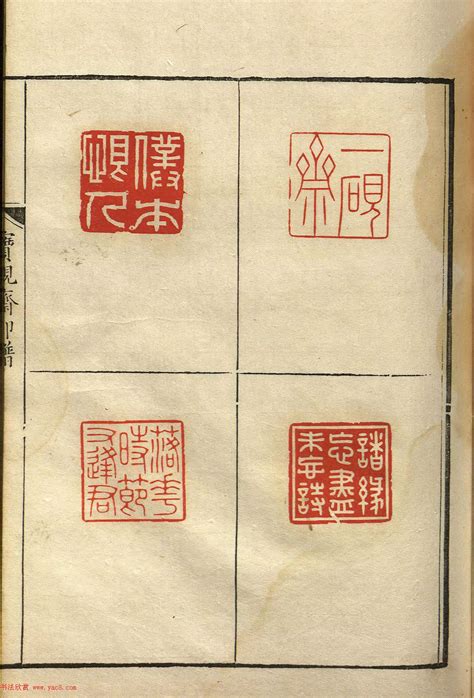 一硯
齋
僕本
人
諸緣
忘盡
未忘詩
落花
時節
又逢君
寶硯齋印譜
书法欣赏 www.yac8.com